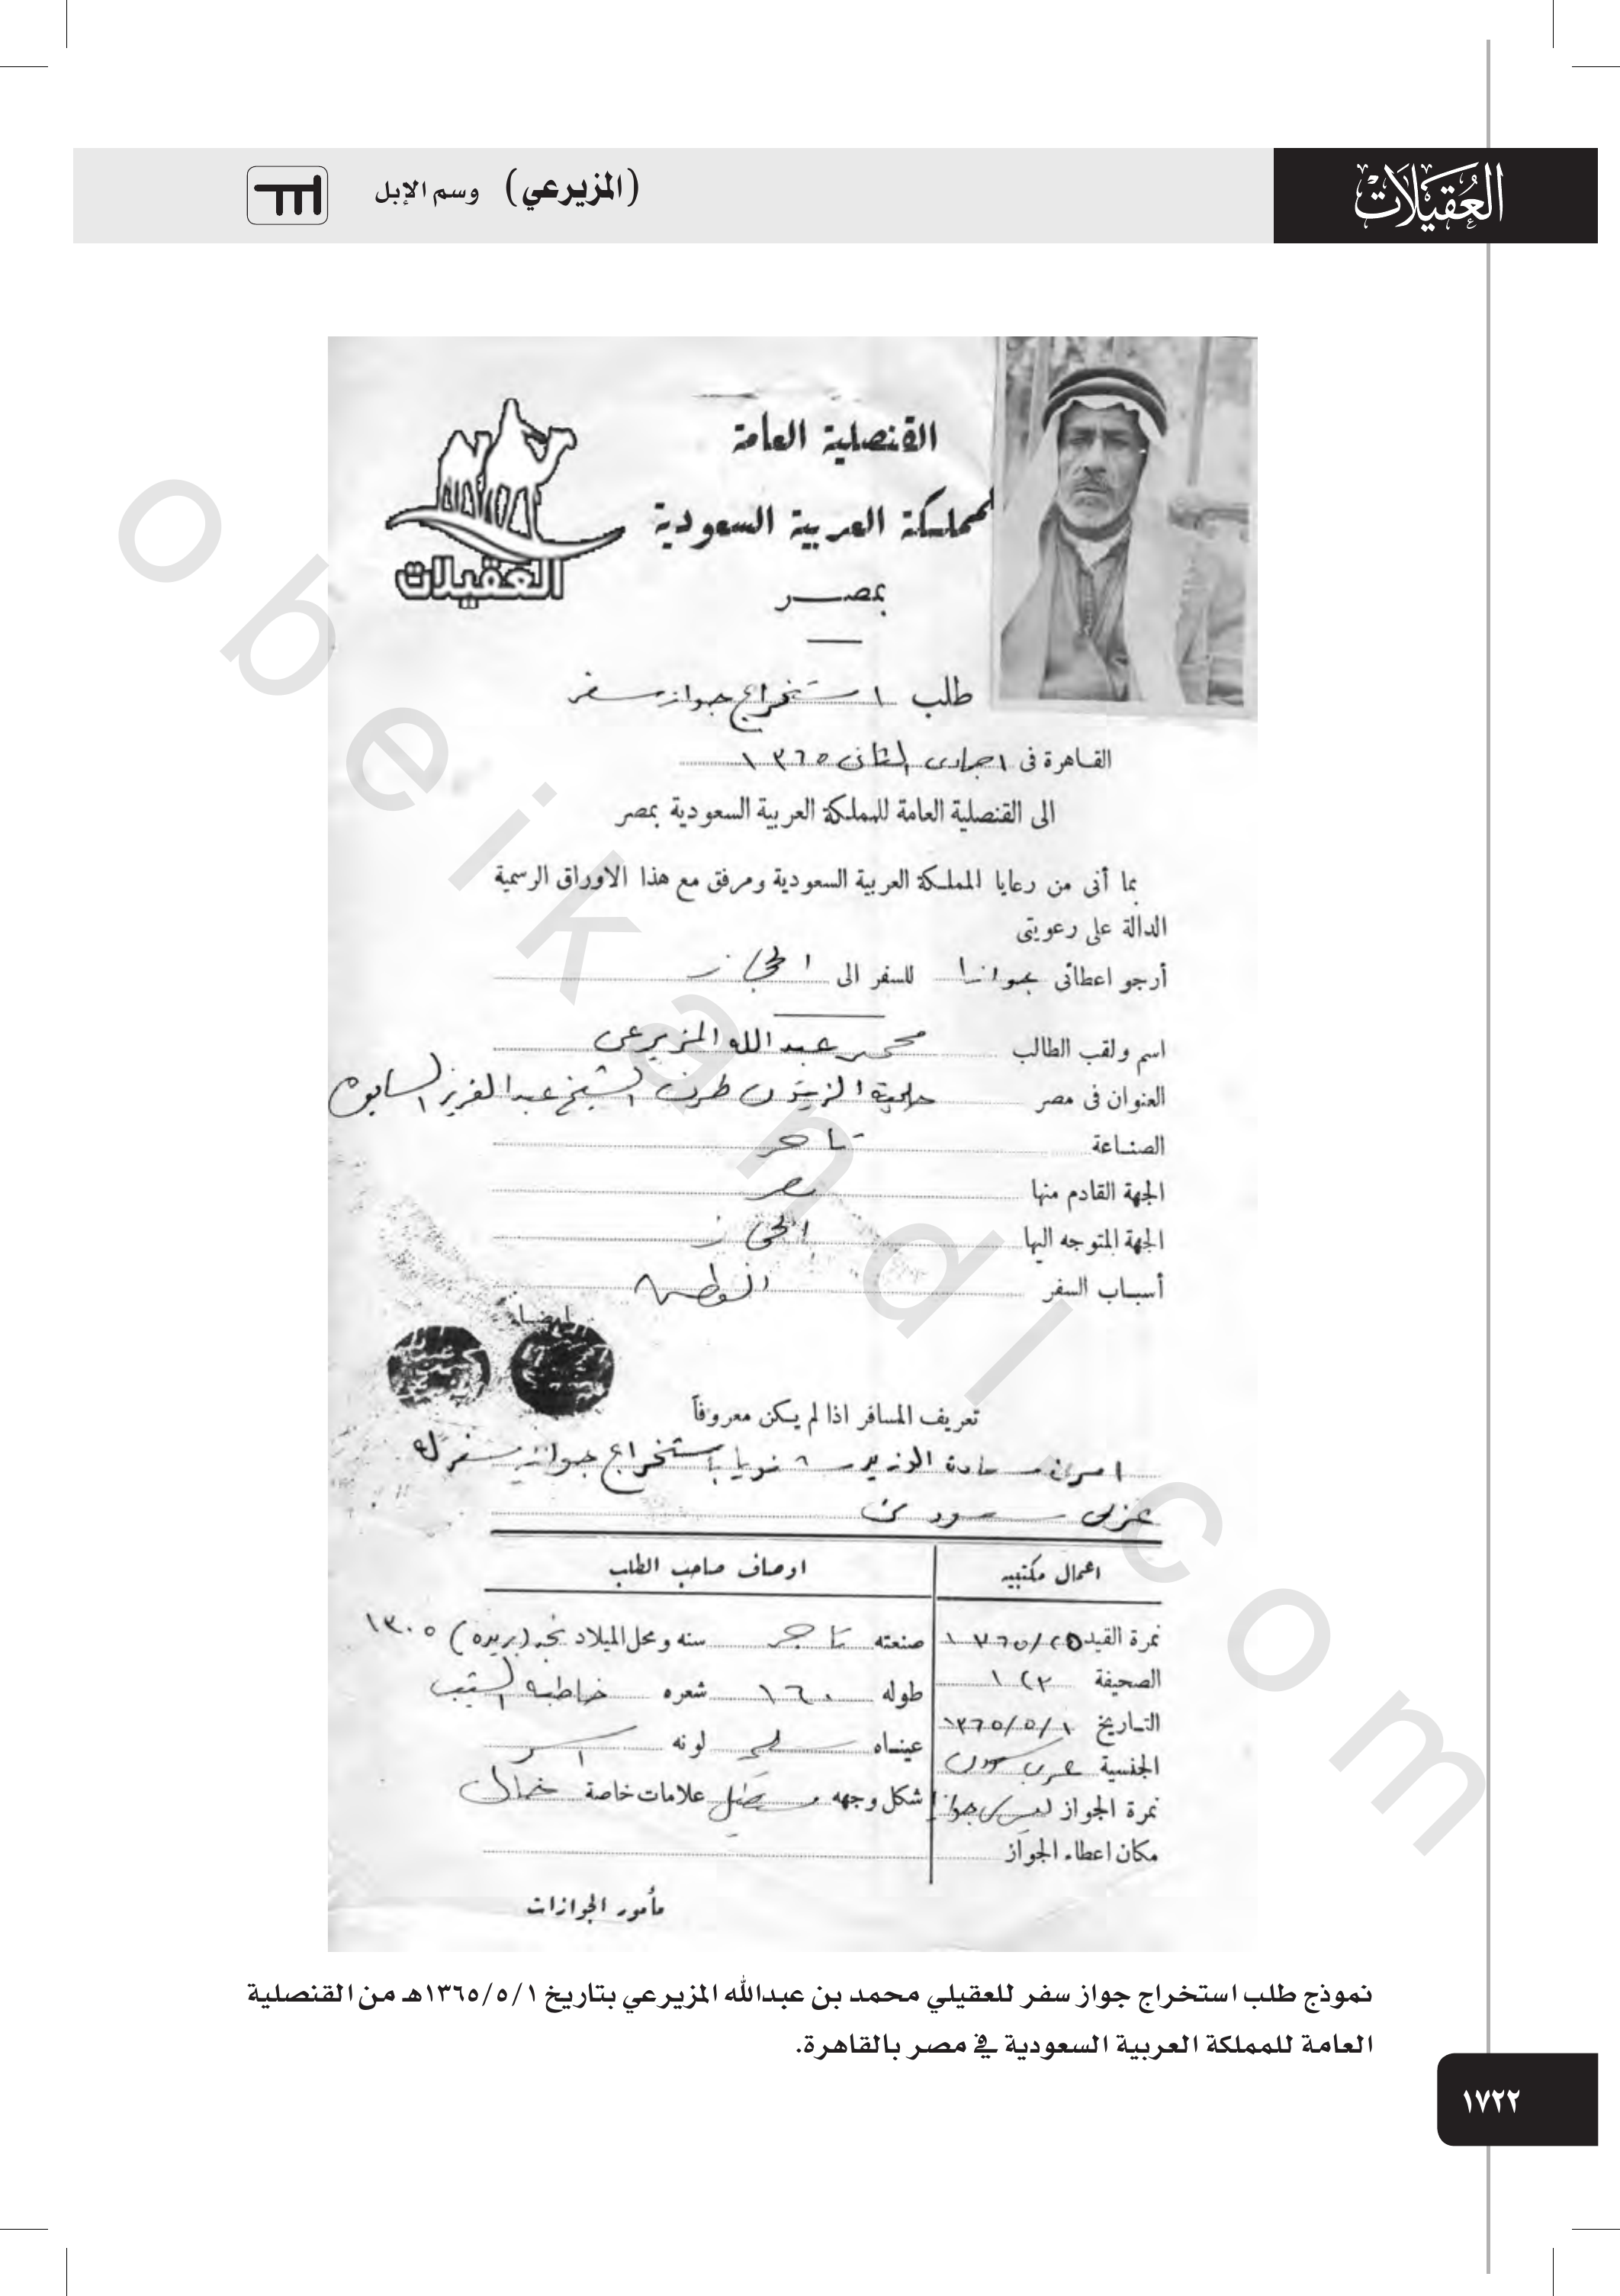 العقيلات
(المزيرعي) وسم الإبل
القنصلية العامة
للمملكة العربية السعودية
بمصر
العقيلات
طلب استخراج جواز سفر
القاهرة فى ١ جمادى الثانى ١٣٦٥
الى القنصلية العامة للمملكة العربية السعودية بمصر
بما أنى من رعايا المملكة العربية السعودية ومرفق مع هذا الاوراق الرسمية
الدالة على رعويتى
أرجو اعطائى جوازا للسفر الى الحجاز
اسم ولقب الطالب محمد عبدالله المزيرعى
العنوان فى مصر حلمية الزيتون طرف الشيخ عبدالعزيز
الصناعة تاجر
الجهة القادم منها مصر
الجهة المتوجه اليها الحجاز
أسباب السفر
امضاء
تعريف المسافر اذا لم يكن معروفاً
سعادة الوزير باستخراج جواز سفر
سعودى
اعمال مكتبيه
اوصاف صاحب الطلب
نمرة القيد ١٣٦٥/٢٥ صنعته تاجر سنه ومحل الميلاد نجد (بريده) ١٣٠٥
الصحيفة ١٢٣ طوله ١٦٠ شعره
التاريخ ١٣٦٥/٥/١ عيناه لونه اسمر
الجنسية عربى سعودى
نمرة الجواز شكل وجهه مستطيل علامات خاصة
مكان اعطاء الجواز
مأمور الجوازات
نموذج طلب استخراج جواز سفر للعقيلي محمد بن عبدالله المزيرعي بتاريخ ١٣٦٥/٥/١هـ من القنصلية
العامة للمملكة العربية السعودية في مصر بالقاهرة.
١٧٢٢
obeikandl.com